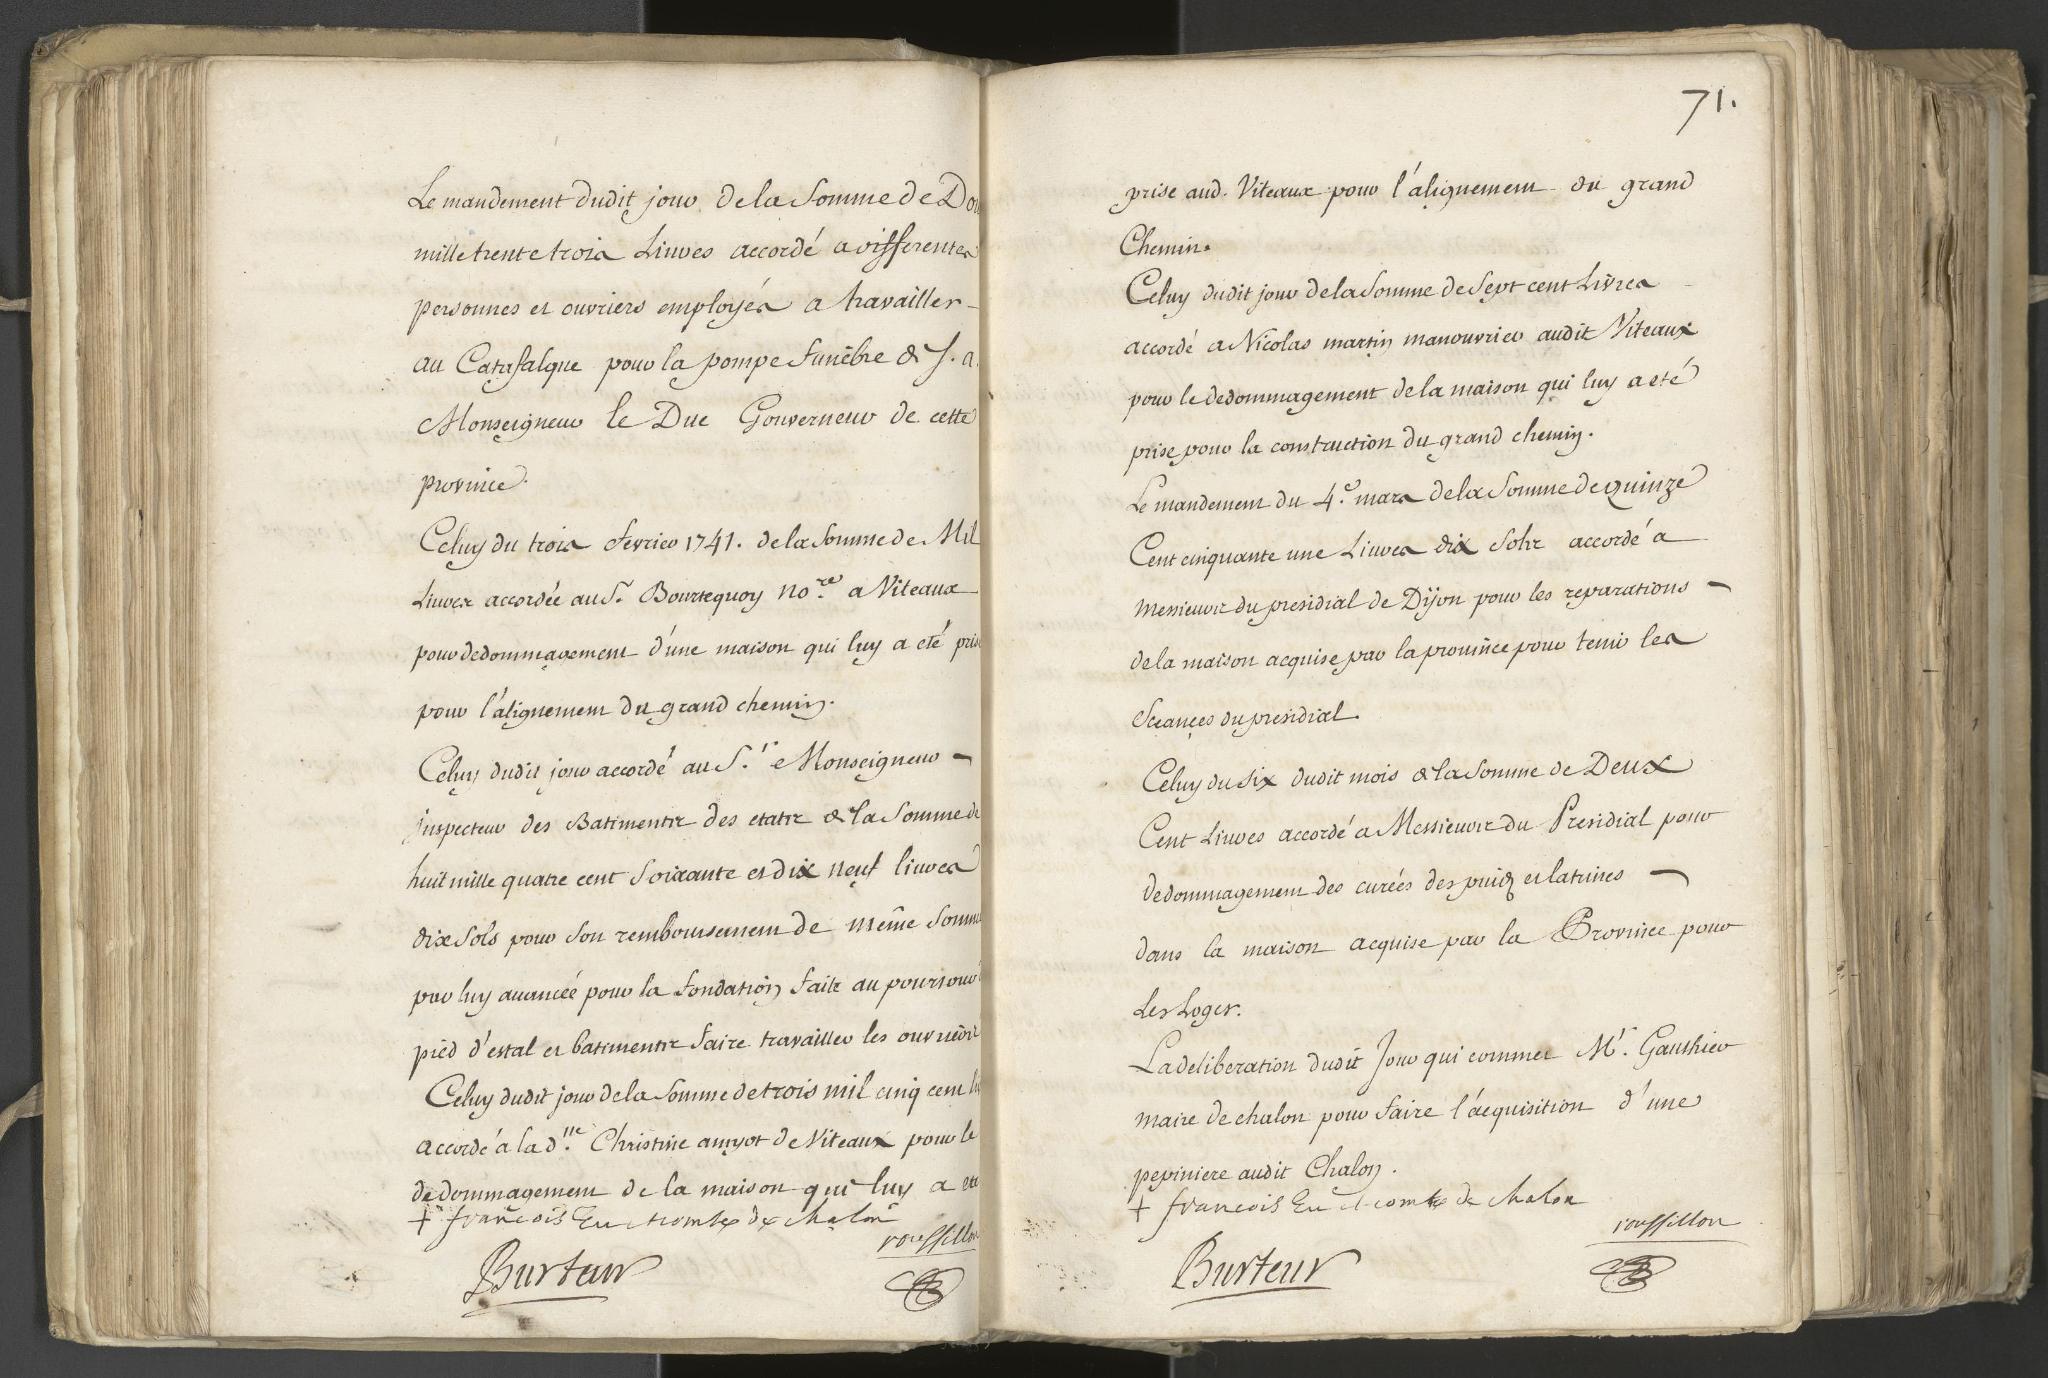 Le mandement dudit jour de la Somme de
mille trente trois Livres accordé a differentes
personnes et ouvriers employés a travailler
au Catafalque pour la pompe funêbre de S. a.
Monseigneur le Duc Gouverneur de cette
province.
Celuy du trois fevrier 1741. de la Somme de Mil
Livres accordée au S.r Bourtequoy no.re a Viteaux
pour dedommagement d'une maison qui luy a eté
pour l'alignement du grand chemin.
Celuy dudit jour accordé au S.r Monseigneur
Inspecteur des Batiments des etats de la Somme de
huit mille quatre cent Soixante et dix neuf livres
dix Sols pour Son remboursement de même Somme
par luy avancée pour la fondation faite au
pied d'estal et batiments faire travailler les ouvriers
Celuy dudit jour de la Somme de trois mil cinq cent
accordé a la d.lle Christine amyot de Viteaux pour le
dedommagement de la maison qui luy a eté
+ françois Eu et comte de chalon
roussillon
Burteur
71.
prise aud. Viteaux pour l'alignement du grand
Chemin.
Celuy dudit jour de la Somme de Sept cent Livres
accordé a Nicolas martin manouvrier audit Viteaux
pour le dedommagement de la maison qui luy a eté
prise pour la construction du grand chemin.
Le mandement du 4.e mars de la Somme de quinze
Cent cinquante une Livres dix Sols accordé a
Messieurs du presidial de Dijon pour les reparations
de la maison acquise par la province pour tenir les
Sceances du presidial.
Celuy du Six dudit mois de la Somme de Deux
Cent Livres accordé a Messieurs du Presidial pour
dedommagement des curées des puis et latrines
dans la maison acquise par la Province pour
les Loger.
La deliberation dudit Jour qui commet M.r Gauthier
maire de chalon pour faire l'acquisition d'une
pepiniere audit Chalon.
+ françois Eu et comte de chalon
roussillon
Burteur